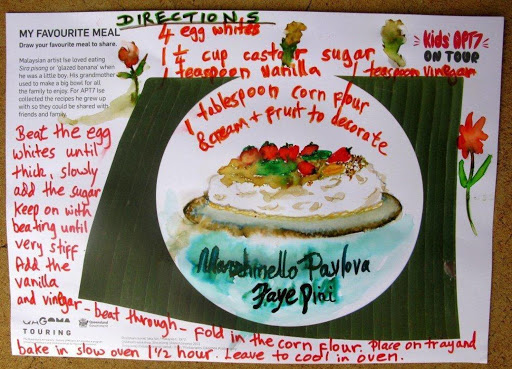 DIRECTIONS
MY FAVOURITE MEAL
Draw your favourite meal to share.
Malaysian artist Ise loved eating
Sira pisang or 'glazed banana' when
he was a little boy. His grandmother
used to make a big bowl for all
the family to enjoy. For APT7 Ise
collected the recipes he grew up
with so they could be shared with
friends and family.
4 egg whites
1 1/4 cup castor sugar
1 teaspoon vanilla 1 teaspoon vinegar
1 tablespoon corn flour
& cream + fruit to decorate
Kids APT7
ON TOUR
Beat the egg
whites until
thick, slowly
add the sugar
Keep on with
beating until
very stiff
Add the
vanilla
and vinegar - beat through - fold in the corn flour. Place on tray and
bake in slow oven 1½ hour. Leave to cool in oven.
Marshmello Pavlova
Faye
TOURING
Queensland
Government